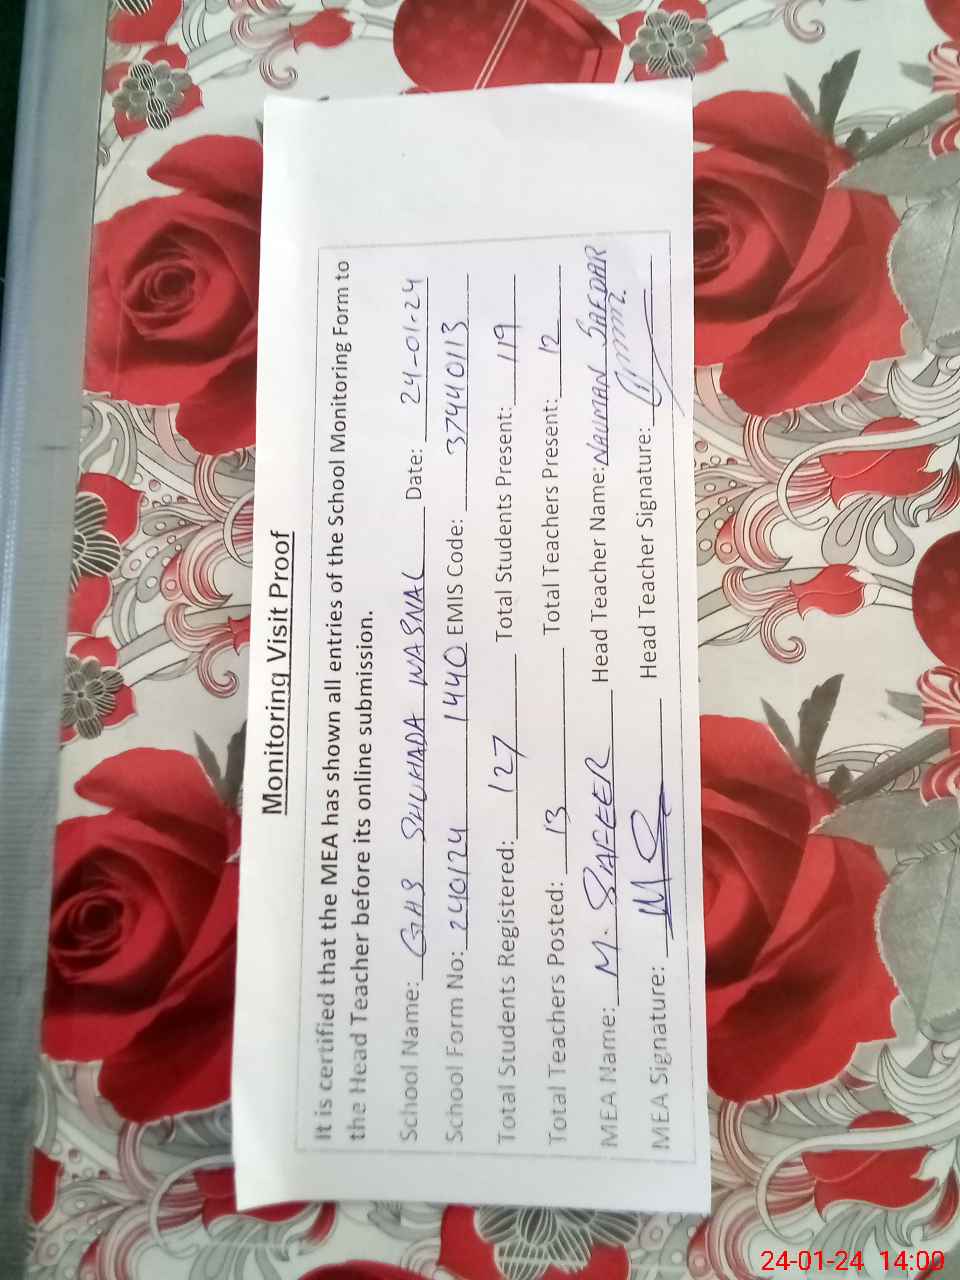 Monitoring Visit Proof
It is certified that the MEA has shown all entries of the School Monitoring Form to
the Head Teacher before its online submission.
School Name: GHS SHUHADA WASNAL Date: 24-01-24
School Form No: 240124 1440 EMIS Code: 37440113
Total Students Registered: 127 Total Students Present: 119
Total Teachers Posted: 13 Total Teachers Present: 12
MEA Name: M. SAFEER Head Teacher Name: NAUMAN SAFDAR
MEA Signature: Head Teacher Signature:
24-01-24 14:00